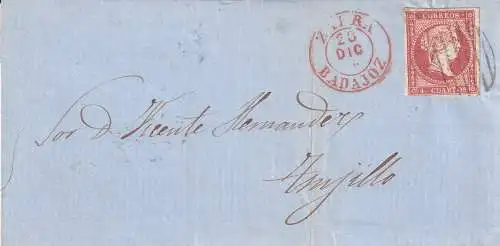 ZAFRA
28
DIC
BADAJOZ
CORREOS
4 CUARTOS
Sor D. Vicente Hernandez
Trujillo